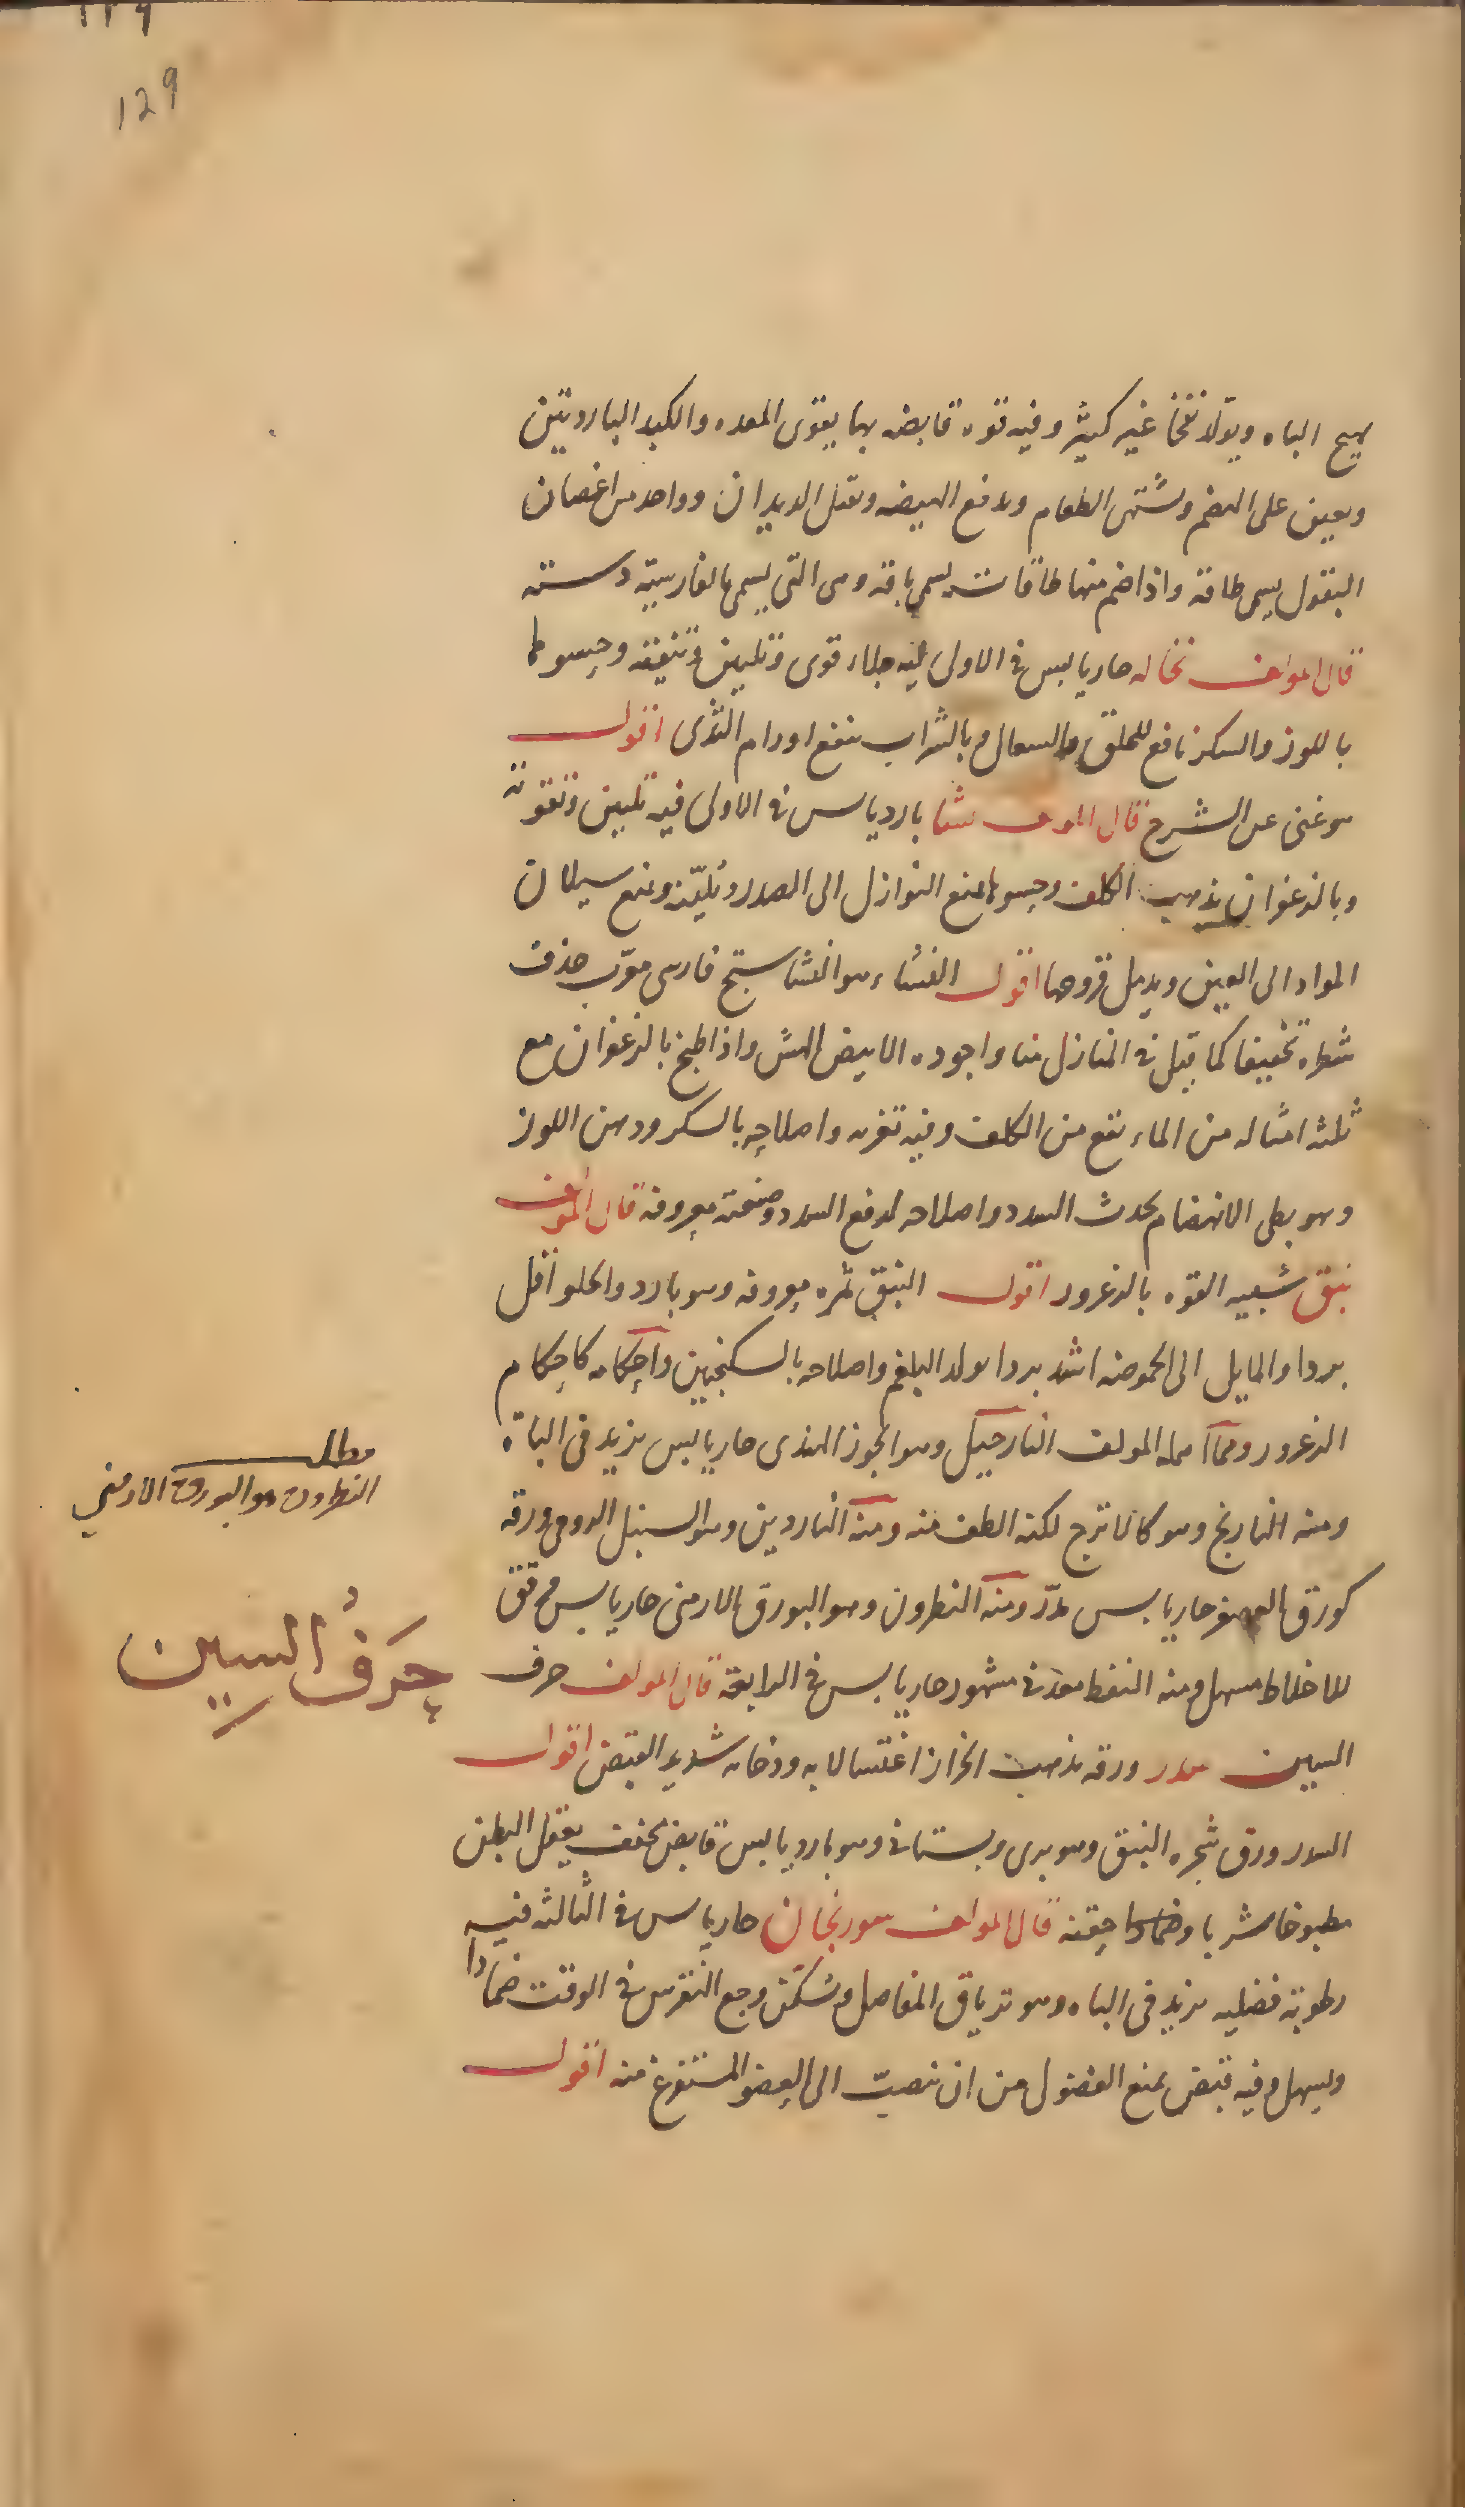 129
يهيج الباه ويولد نفخا غير كثير وفيه قوه قابضه بها يقوى المعده والكبد الباردتين
ويعين على الهضم ويشتهى الطعام ويدفع الهيضه ويقتل الديدان وواحد من اغصان
البقول يسمى طاقة واذا ضم منها طاقات يسمى باقه وهى التى يسمى بالفارسية دسته
قال المولف نخاله حار يابس فى الاولى فيه جلاء قوى وتليين وتنقيه وحسوها
باللوز والسكر نافع للحلق والسعال وبالشراب ينفع اورام الثدى اقول
هو غنى عن الشرح قال المولف نشا بارد يابس فى الاولى فيه تليين وتقوية
وبالزعفران يذهب الكلف وحسوها يمنع النوازل الى الصدر وتليّنه ويمنع سيلان
المواد الى العين ويدمل قروحها اقول النشاء هو النشاستج فارسى معرّب حذف
شطره تخفيفا كما قيل فى المنازل منا واجوده الابيض الهش واذا طبخ بالزعفران مع
ثلثه امثاله من الماء نفع من الكلف وفيه تغريه واصلاحه بالسكر ودهن اللوز
وهو بطى الانهضام يحدث السدد واصلاحه لدفع السدد وصنعته معروفه قال المولف
نبق شبيه القوه بالزعرور اقول النبق ثمره معروفه وهو بارد والحلو اقل
بردا والمايل الى الحموضه اشد بردا يولد البلغم واصلاحه بالسكنجبين واحكامه كاحكام
الزعرور ومما اهمله المولف النارجيل وهو الجوز الهندى حار يابس يزيد فى الباه
ومنه النارنج وهو كالاترج لكنه الطف منه ومنه الناردين وهو السنبل الرومى ورقه
كورق العصفر حار يابس مدرّ ومنه النطرون وهو البورق الارمنى حار يابس محرق
للاخلاط مسهل ومنه النفط معدنى مشهور حار يابس فى الرابعه قال المولف حرف
السين سدر ورقه يذهب الحزاز اغتسالا به ودخانه شديد القبض اقول
السدر ورق شجره النبق وهو برى وبستانى وهو بارد يابس قابض مجفف يعقل البطن
مطبوخا شربا وضمادا وحقنه قال المولف سورنجان حار يابس فى الثالثه فيه
رطوبة فضليه يزيد فى الباه وهو ترياق المفاصل ويسكّن وجع النقرس فى الوقت ضمادا
ويسهل وفيه قبض يمنع الفضول من ان تنصبّ الى العضو المستفرغ منه اقول
مطلب
النطرون هو البورق الارمني
حَرفُ السين